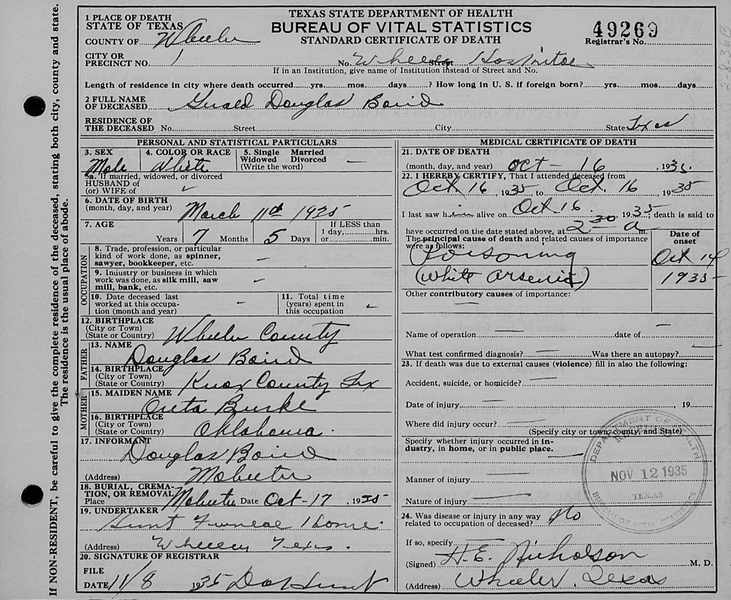 TEXAS STATE DEPARTMENT OF HEALTH
BUREAU OF VITAL STATISTICS
STANDARD CERTIFICATE OF DEATH
49269
Registrar's No.
1 PLACE OF DEATH
STATE OF TEXAS
COUNTY OF Wheeler
CITY OR
PRECINCT NO. 1 No. Wheeler Hospital
If in an Institution, give name of Institution instead of Street and No.
Length of residence in city where death occurred yrs. mos. days? How long in U. S. if foreign born? yrs. mos. days
2 FULL NAME
OF DECEASED Gerald Douglas Baird
RESIDENCE OF
THE DECEASED No. Street City State Texas
PERSONAL AND STATISTICAL PARTICULARS
3. SEX 4. COLOR OR RACE 5. Single Married
Widowed Divorced
(Write the word) —
Male White
5a. If married, widowed, or divorced
HUSBAND OF
(or) WIFE OF
6. DATE OF BIRTH
(month, day, and year) March 11th 1925
7. AGE If LESS than
Years 7 Months 5 Days 1 day, hrs.
or min.
OCCUPATION
8. Trade, profession, or particular
kind of work done, as spinner,
sawyer, bookkeeper, etc. —
9. Industry or business in which
work was done, as silk mill, saw
mill, bank, etc. —
10. Date deceased last
worked at this occupa-
tion (month and year) —
11. Total time
(years) spent in
this occupation —
12. BIRTHPLACE
(City or Town)
(State or Country) Wheeler County
FATHER
13. NAME
Douglas Baird
14. BIRTHPLACE
(City or Town)
(State or Country) Knox County Tex
MOTHER
15. MAIDEN NAME
Oreta Burke
16. BIRTHPLACE
(City or Town)
(State or Country) Oklahoma.
17. INFORMANT
Douglas Baird
(Address) Mobeetie
18. BURIAL, CREMA-
TION, OR REMOVAL
Place Mobeetie Date Oct-17 1935
19. UNDERTAKER
Hunt Funeral Home.
(Address) Wheeler Texas.
20. SIGNATURE OF REGISTRAR
FILE
DATE 11/8 1935
MEDICAL CERTIFICATE OF DEATH
21. DATE OF DEATH
(month, day, and year) Oct – 16 1935
22. I HEREBY CERTIFY, That I attended deceased from
Oct 16 1935 to Oct. 16 1935
I last saw him alive on Oct. 16 1935 death is said to
have occurred on the date stated above, at 2 30 a m.
The principal cause of death and related causes of importance
were as follows:
Date of
onset
Poisoning Oct 14
(White Arsenic) 1935 –
Other contributory causes of importance:
Name of operation — date of —
What test confirmed diagnosis? — Was there an autopsy? —
23. If death was due to external causes (violence) fill in also the following:
Accident, suicide, or homicide? —
Date of injury — 19
Where did injury occur? —
(Specify city or town, county, and State)
Specify whether injury occurred in in-
dustry, in home, or in public place.
Manner of injury —
Nature of injury —
DEPARTMENT OF HEALTH
NOV 12 1935
TEXAS
BUREAU OF VITAL STATISTICS
24. Was disease or injury in any way
related to occupation of deceased? No
If so, specify
(Signed) H. E. Nicholson M. D.
(Address) Wheeler, Texas
If NON-RESIDENT, be careful to give the complete residence of the deceased, stating both city, county and state.
The residence is the usual place of abode.